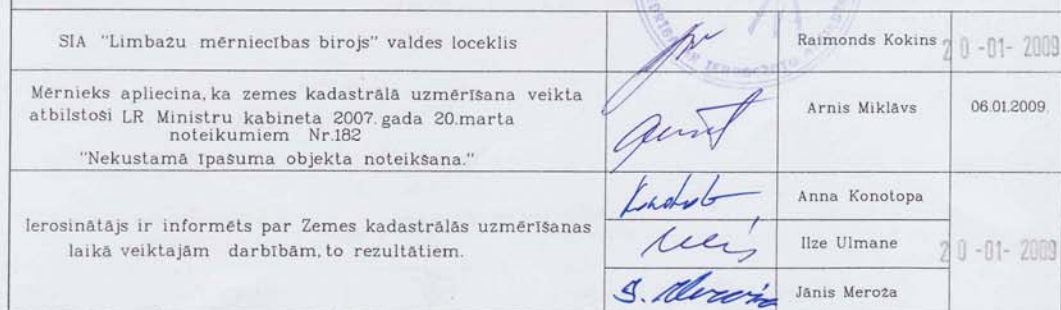 SIA "Limbažu mērniecības birojs" valdes loceklis
Raimonds Kokins
20 -01- 2009
Mērnieks apliecina, ka zemes kadastrālā uzmērīšana veikta
atbilstoši LR Ministru kabineta 2007. gada 20.marta
noteikumiem Nr.182
"Nekustamā īpašuma objekta noteikšana."
Arnis Miklāvs
06.01.2009.
Ierosinātājs ir informēts par Zemes kadastrālās uzmērīšanas
laikā veiktajām darbībām, to rezultātiem.
Anna Konotopa
Ilze Ulmane
20 -01- 2009
Jānis Meroža